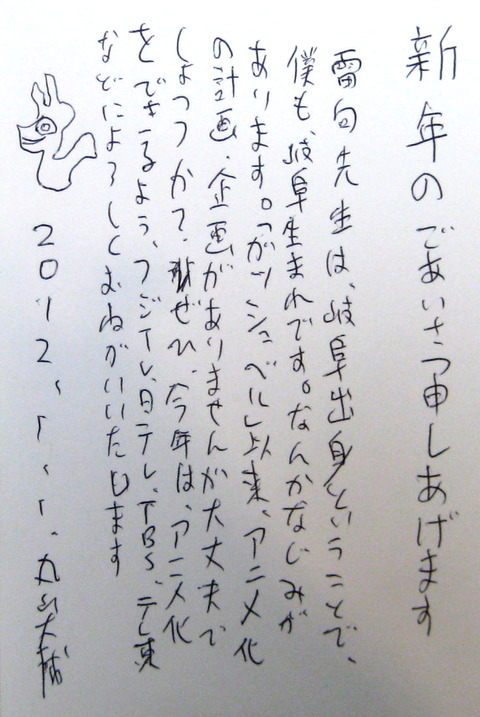 新年のごあいさつ申しあげます
雷句先生は、岐阜出身ということで、
僕も、岐阜生まれです。なんかなじみが
あります。「ガッシュベル」以来、アニメ化
の計画・企画がありませんが大丈夫で
しょうか？ぜひ、今年は、アニメ化
をできるよう、フジテレ、日テレ、TBS、テレ東
などによろしくおねがいいたします
2012、1、1、丸山大輔